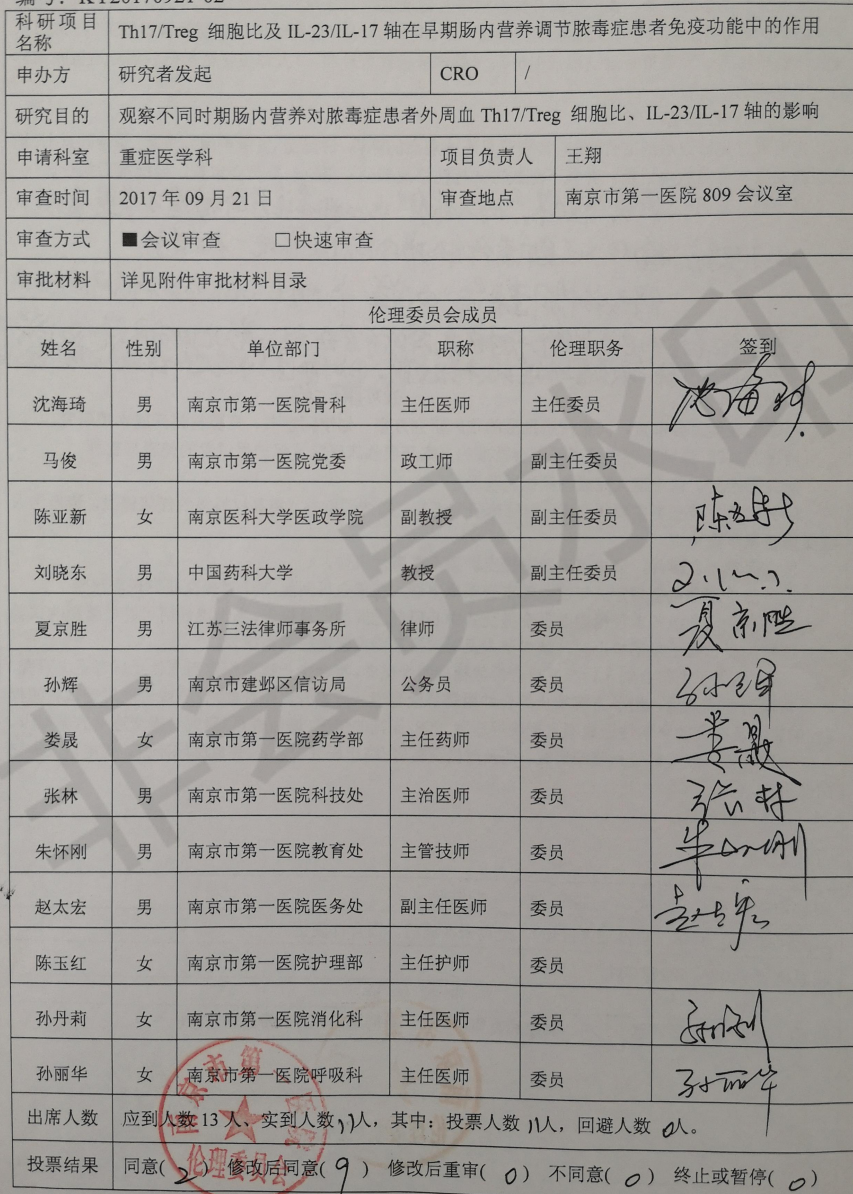 编号：KY20170921-02
科研项目名称 Th17/Treg 细胞比及 IL-23/IL-17 轴在早期肠内营养调节脓毒症患者免疫功能中的作用
申办方 研究者发起 CRO /
研究目的 观察不同时期肠内营养对脓毒症患者外周血 Th17/Treg 细胞比、IL-23/IL-17 轴的影响
申请科室 重症医学科 项目负责人 王翔
审查时间 2017 年 09 月 21 日 审查地点 南京市第一医院 809 会议室
审查方式 ■会议审查 □快速审查
审批材料 详见附件审批材料目录
伦理委员会成员
姓名 性别 单位部门 职称 伦理职务 签到
沈海琦 男 南京市第一医院骨科 主任医师 主任委员 沈海琦
马俊 男 南京市第一医院党委 政工师 副主任委员
陈亚新 女 南京医科大学医政学院 副教授 副主任委员 陈亚新
刘晓东 男 中国药科大学 教授 副主任委员
夏京胜 男 江苏三法律师事务所 律师 委员 夏京胜
孙辉 男 南京市建邺区信访局 公务员 委员 孙辉
娄晟 女 南京市第一医院药学部 主任药师 委员 娄晟
张林 男 南京市第一医院科技处 主治医师 委员 张林
朱怀刚 男 南京市第一医院教育处 主管技师 委员 朱怀刚
赵太宏 男 南京市第一医院医务处 副主任医师 委员 赵太宏
陈玉红 女 南京市第一医院护理部 主任护师 委员
孙丹莉 女 南京市第一医院消化科 主任医师 委员
孙丽华 女 南京市第一医院呼吸科 主任医师 委员 孙丽华
出席人数 应到人数 13 人、实到人数 11 人，其中：投票人数 11 人，回避人数 0 人。
投票结果 同意( 2 ) 修改后同意( 9 ) 修改后重审( 0 ) 不同意( 0 ) 终止或暂停( 0 )
南京市第一医院
伦理委员会
非会员水印